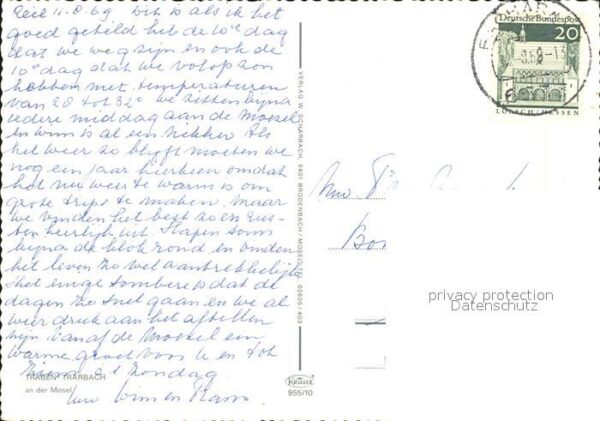 Zell 11-8-69 Dit is als ik het
goed geteld heb de 10e dag
dat we weg zijn en ook de
10e dag dat we volop zon
hebben met temperaturen
van 20 tot 32° we zitten bijna
iedere middag aan de Moesel
en wim is al een nikker Als
het weer zo blijft moeten we
nog een jaar hierheen omdat
het nu weer te warm is om
grote trips te maken, maar
we vinden het best zo en rus-
ten heerlijk uit. Slapen soms
bijna de klok rond en vinden
het leven zo wel aantrekkelijk
't het enige sombere is dat de
dagen zo snel gaan en we al
weer druk aan het aftellen
zijn Vanaf de Moesel een
warme groet voor U en tot
Zondag
Wim en
TRABEN-TRARBACH
an der Mosel
VERLAG W. SCHARBACH, 5401 BRODENBACH/MOSEL, TEL. 02605/403
KRÜGER
955/10
Deutsche Bundespost
20
LORSCH/HESSEN
privacy protection
Datenschutz